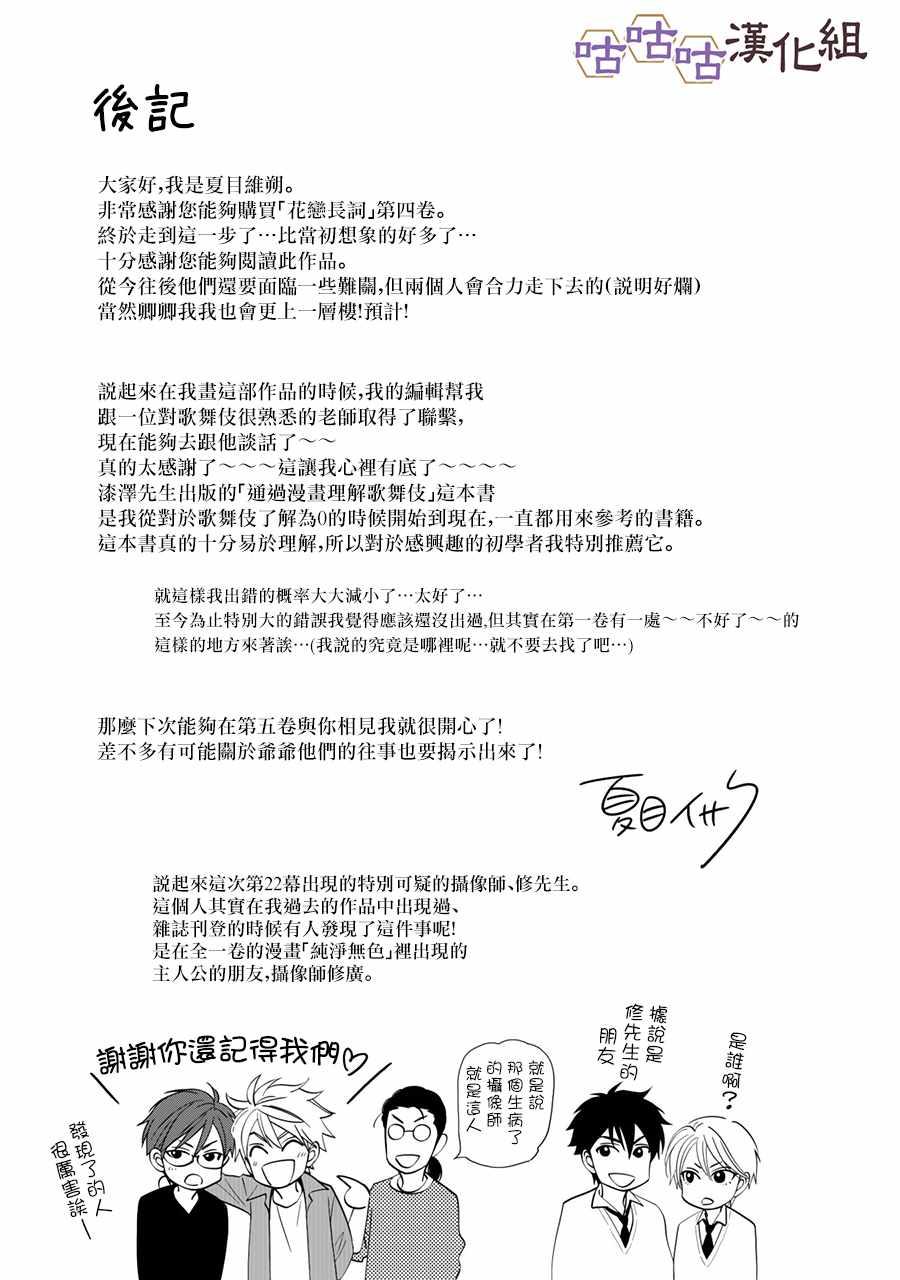 咕咕咕漢化組
後記
大家好,我是夏目維朔。
非常感謝您能夠購買「花戀長詞」第四卷。
終於走到這一步了…比當初想象的好多了…
十分感謝您能夠閱讀此作品。
從今往後他們還要面臨一些難關,但兩個人會合力走下去的(説明好爛)
當然卿卿我我也會更上一層樓!預計!
説起來在我畫這部作品的時候,我的編輯幫我
跟一位對歌舞伎很熟悉的老師取得了聯繫,
現在能夠去跟他談話了～～
真的太感謝了～～～這讓我心裡有底了～～～～
漆澤先生出版的「通過漫畫理解歌舞伎」這本書
是我從對於歌舞伎了解為0的時候開始到現在,一直都用來參考的書籍。
這本書真的十分易於理解,所以對於感興趣的初學者我特別推薦它。
就這樣我出錯的概率大大減小了…太好了…
至今為止特別大的錯誤我覺得應該還沒出過,但其實在第一卷有一處～～不好了～～的
這樣的地方來著誒…(我説的究竟是哪裡呢…就不要去找了吧…)
那麼下次能夠在第五卷與你相見我就很開心了!
差不多有可能關於爺爺他們的往事也要揭示出來了!
夏目イサク
説起來這次第22幕出現的特別可疑的攝像師、修先生。
這個人其實在我過去的作品中出現過、
雜誌刊登的時候有人發現了這件事呢!
是在全一卷的漫畫「純淨無色」裡出現的
主人公的朋友,攝像師修廣。
謝謝你還記得我們♡
發現了的人
很厲害誒ー
就是說
那個生病了
的攝像師
就是這人
據說是
修先生的
朋友
是誰啊?